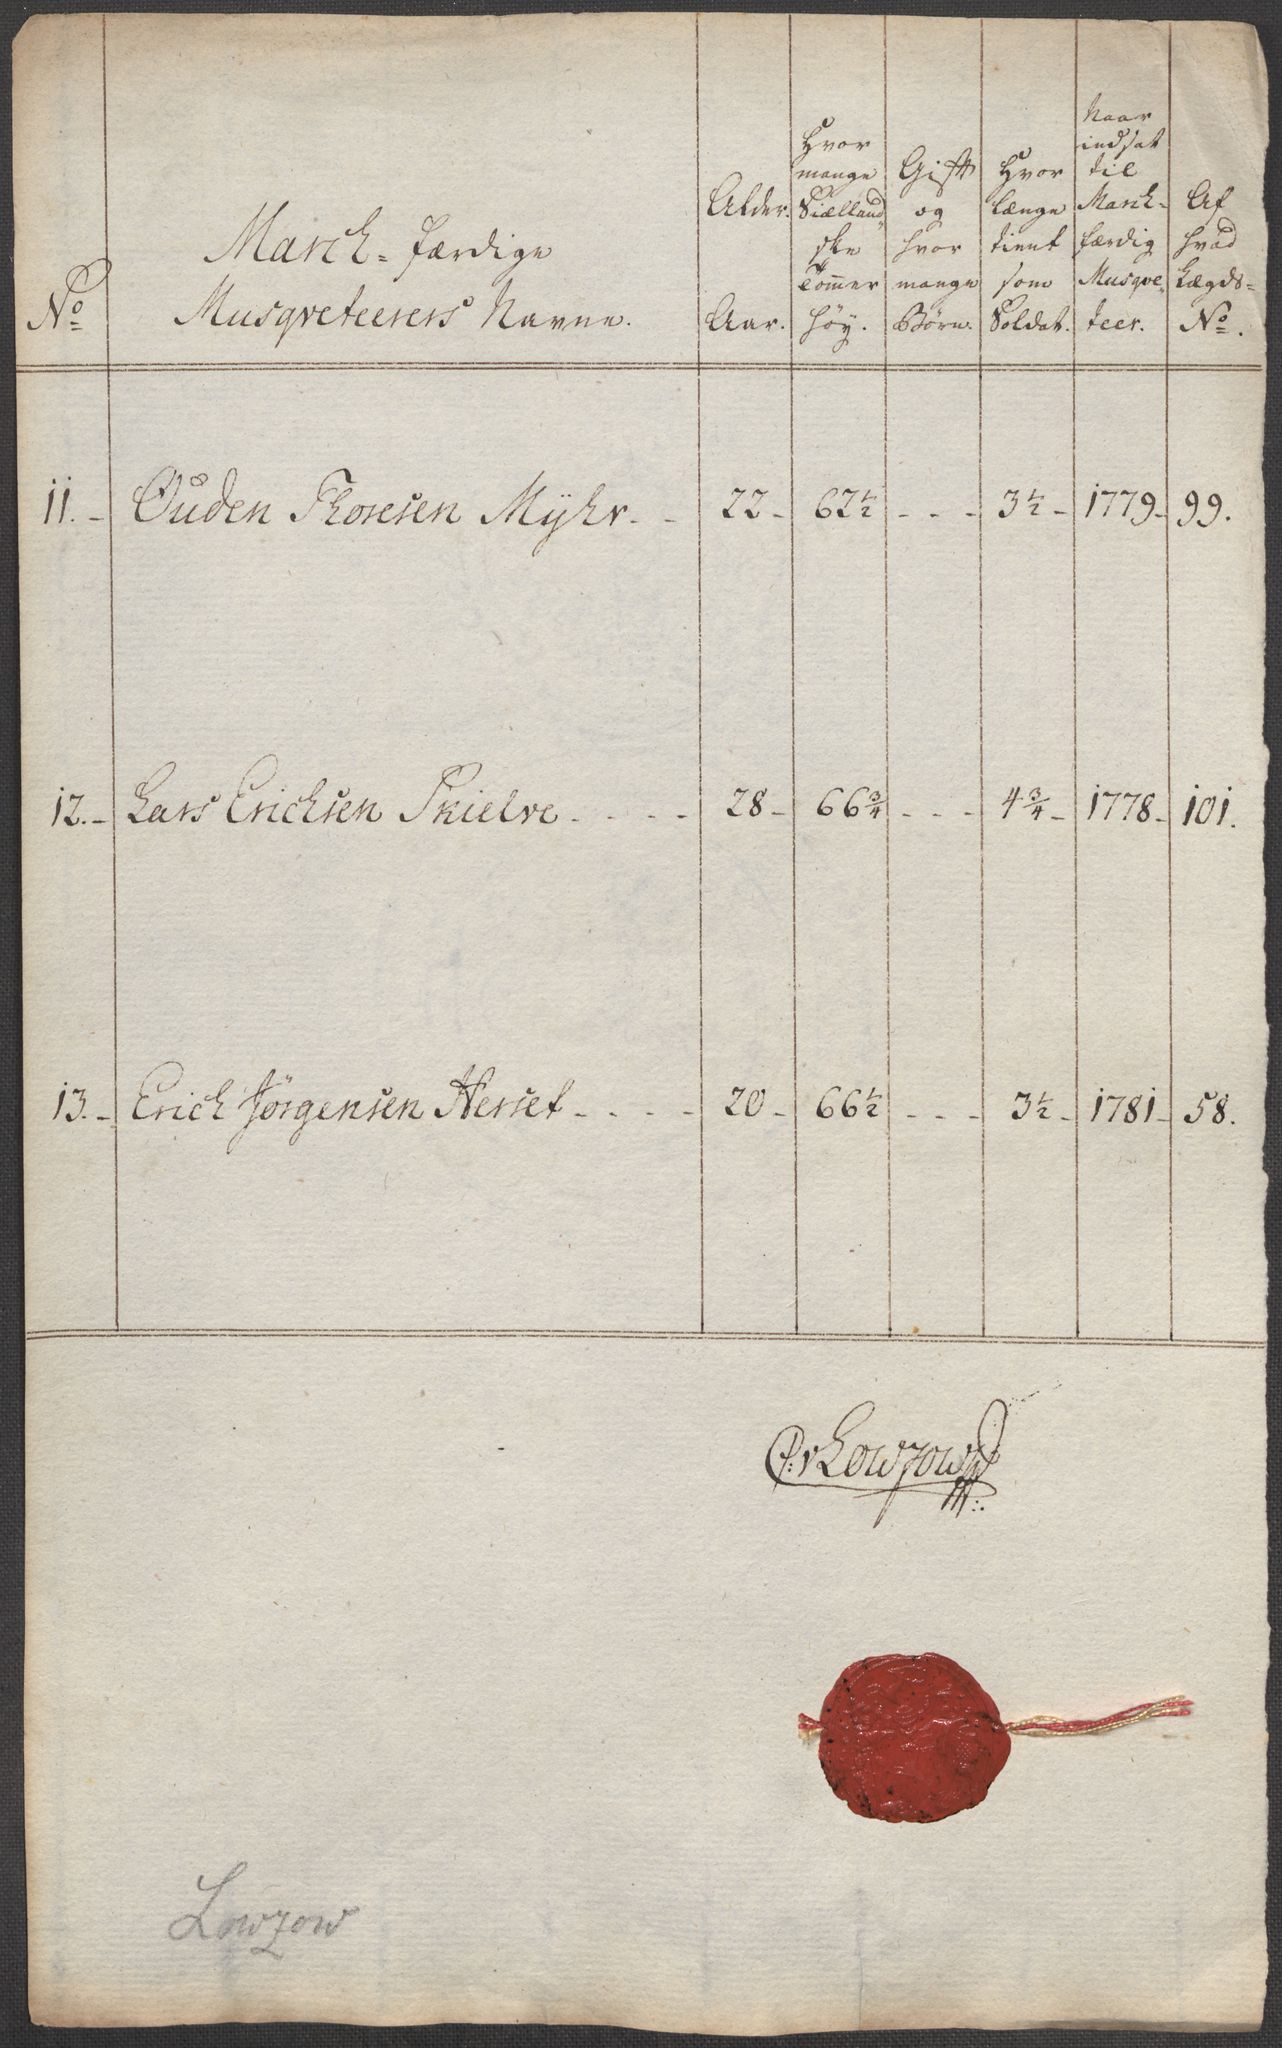 No
March-færdige
Musqveteerers Navne.
Alder.
Aar.
Hvor
mange
Siælland
ske
Tommer
høy.
Gift
og
hvor
mange
Børn.
Hvor
længe
tient
som
Soldat.
Naar
indsat
til
March-
færdig
Musqve-
teer.
Af
hvad
Lægds-
No.
11. - Ouden Thoresen Myhr. - 22 - 62½ - - - 3½ - 1779 - 99.
12. - Lars Erichsen Skielve - - - - 28 - 66¾ - - - 4¾ - 1778 - 101.
13. - Erich Jørgensen Herset - - - - 20 - 66½ - - - 3½ - 1781 - 58.
v Lowzow
Lowzow